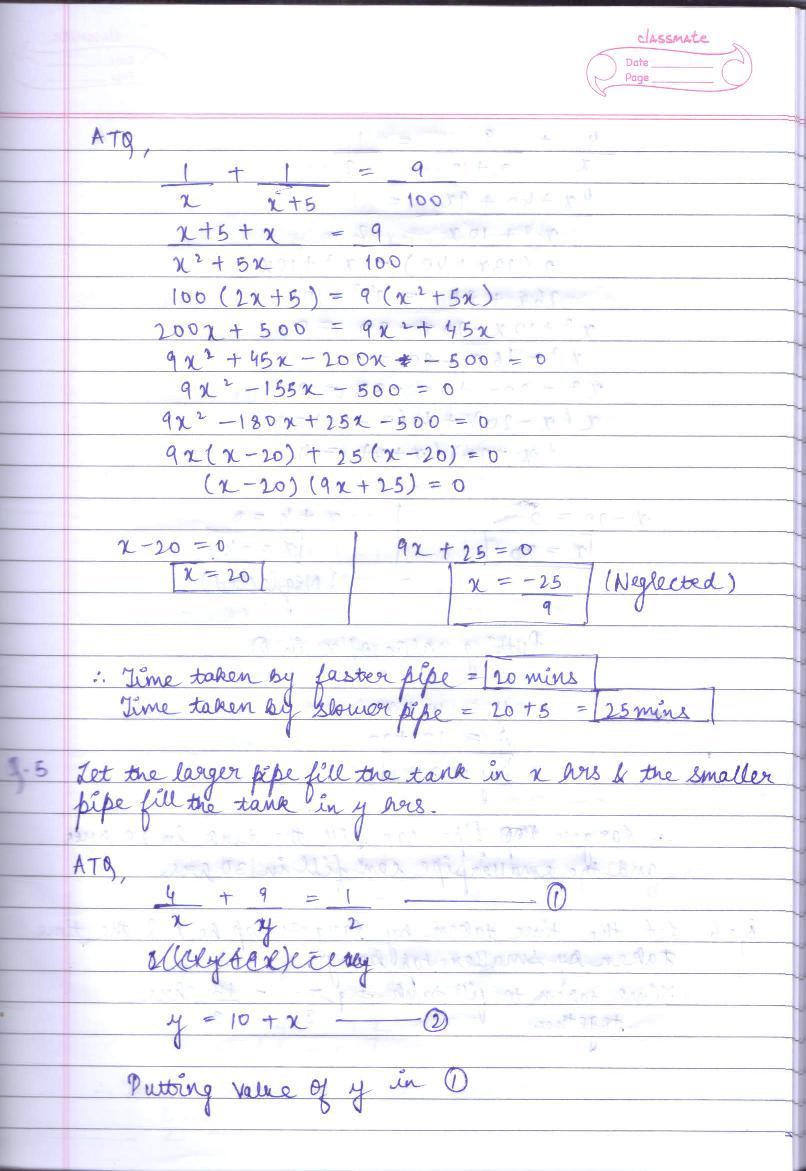 classmate
Date
Page
ATQ,
1/x + 1/x+5 = 9/100
x+5+x/x² + 5x = 9/100
100 (2x+5) = 9 (x²+5x)
200x + 500 = 9x² + 45x
9x² + 45x - 200x - 500 = 0
9x² - 155x - 500 = 0
9x² - 180x + 25x - 500 = 0
9x(x-20) + 25(x-20) = 0
(x-20) (9x+25) = 0
x-20 = 0 | 9x + 25 = 0
x = 20 | x = -25/9 (Neglected)
∴ Time taken by faster pipe = 20 mins
Time taken by slower pipe = 20 +5 = 25 mins
5 Let the larger pipe fill the tank in x hrs & the smaller
pipe fill the tank in y hrs.
ATQ,
4/x + 9/y = 1/2 ①
y = 10 + x ②
Putting value of y in ①